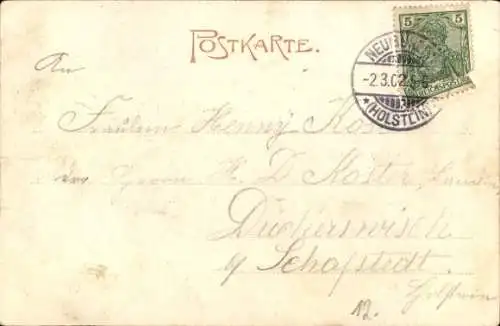 POSTKARTE.
5 5
NEU
-2.3.02.
* (HOLSTEIN)
An
Fräulein Henny Kos
H. D. Koster,
Dückerswisch
Schafstedt.
Holstein
12.